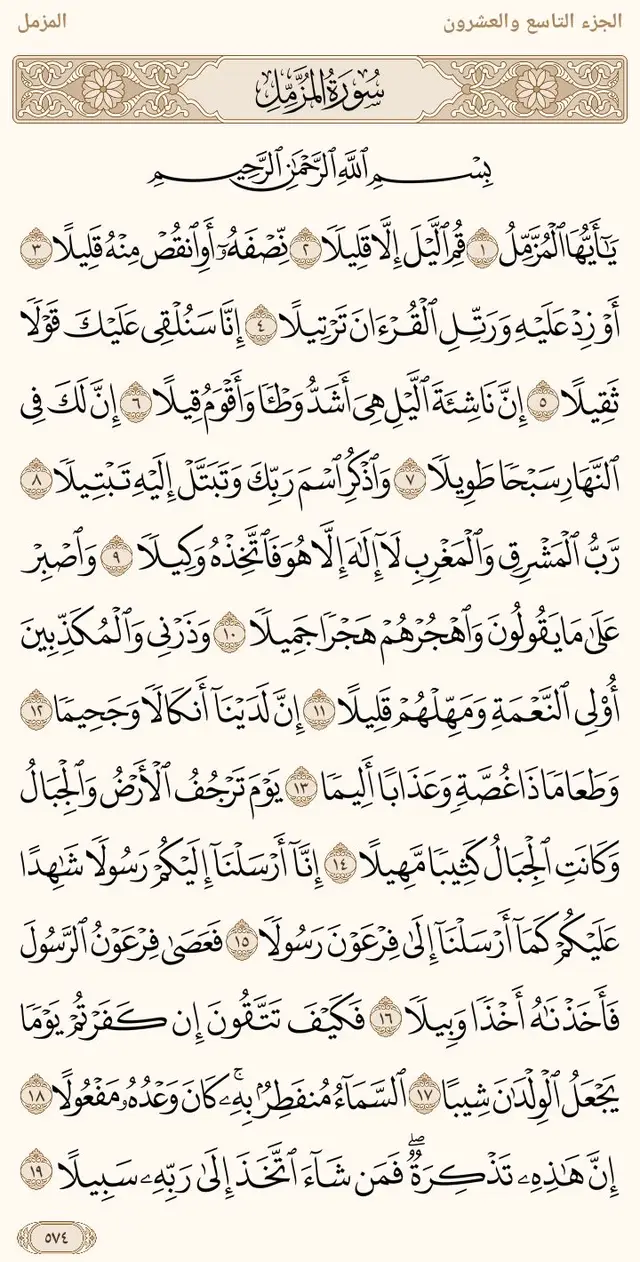 الجزء التاسع والعشرون
المزمل
سُورَةُ المُزَّمِّلِ
بِسْمِ ٱللَّهِ ٱلرَّحْمَٰنِ ٱلرَّحِيمِ
يَٰٓأَيُّهَا ٱلْمُزَّمِّلُ ١ قُمِ ٱلَّيْلَ إِلَّا قَلِيلًا ٢ نِّصْفَهُۥٓ أَوِ ٱنقُصْ مِنْهُ قَلِيلًا ٣
أَوْ زِدْ عَلَيْهِ وَرَتِّلِ ٱلْقُرْءَانَ تَرْتِيلًا ٤ إِنَّا سَنُلْقِى عَلَيْكَ قَوْلًا
ثَقِيلًا ٥ إِنَّ نَاشِئَةَ ٱلَّيْلِ هِىَ أَشَدُّ وَطْـًٔا وَأَقْوَمُ قِيلًا ٦ إِنَّ لَكَ فِى
ٱلنَّهَارِ سَبْحًا طَوِيلًا ٧ وَٱذْكُرِ ٱسْمَ رَبِّكَ وَتَبَتَّلْ إِلَيْهِ تَبْتِيلًا ٨
رَّبُّ ٱلْمَشْرِقِ وَٱلْمَغْرِبِ لَآ إِلَٰهَ إِلَّا هُوَ فَٱتَّخِذْهُ وَكِيلًا ٩ وَٱصْبِرْ
عَلَىٰ مَا يَقُولُونَ وَٱهْجُرْهُمْ هَجْرًا جَمِيلًا ١٠ وَذَرْنِى وَٱلْمُكَذِّبِينَ
أُو۟لِى ٱلنَّعْمَةِ وَمَهِّلْهُمْ قَلِيلًا ١١ إِنَّ لَدَيْنَآ أَنكَالًا وَجَحِيمًا ١٢
وَطَعَامًا ذَا غُصَّةٍ وَعَذَابًا أَلِيمًا ١٣ يَوْمَ تَرْجُفُ ٱلْأَرْضُ وَٱلْجِبَالُ
وَكَانَتِ ٱلْجِبَالُ كَثِيبًا مَّهِيلًا ١٤ إِنَّآ أَرْسَلْنَآ إِلَيْكُمْ رَسُولًا شَٰهِدًا
عَلَيْكُمْ كَمَآ أَرْسَلْنَآ إِلَىٰ فِرْعَوْنَ رَسُولًا ١٥ فَعَصَىٰ فِرْعَوْنُ ٱلرَّسُولَ
فَأَخَذْنَٰهُ أَخْذًا وَبِيلًا ١٦ فَكَيْفَ تَتَّقُونَ إِن كَفَرْتُمْ يَوْمًا
يَجْعَلُ ٱلْوِلْدَٰنَ شِيبًا ١٧ ٱلسَّمَآءُ مُنفَطِرٌۢ بِهِۦ ۚ كَانَ وَعْدُهُۥ مَفْعُولًا ١٨
إِنَّ هَٰذِهِۦ تَذْكِرَةٌ ۖ فَمَن شَآءَ ٱتَّخَذَ إِلَىٰ رَبِّهِۦ سَبِيلًا ١٩
٥٧٤